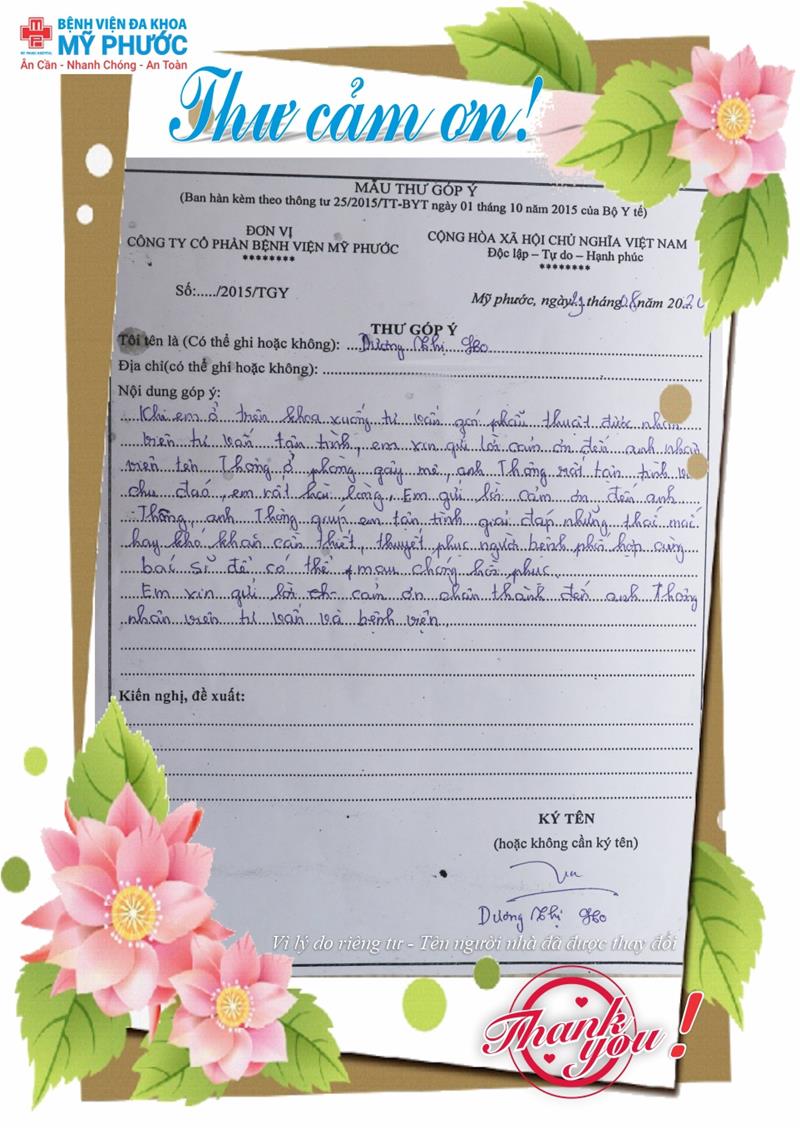 BỆNH VIỆN ĐA KHOA
MỸ PHƯỚC
MY PHUOC HOSPITAL
Ân Cần - Nhanh Chóng - An Toàn
Thư cảm ơn!
MẪU THƯ GÓP Ý
(Ban hàn kèm theo thông tư 25/2015/TT-BYT ngày 01 tháng 10 năm 2015 của Bộ Y tế)
ĐƠN VỊ
CÔNG TY CỔ PHẦN BỆNH VIỆN MỸ PHƯỚC
********
CỘNG HÒA XÃ HỘI CHỦ NGHĨA VIỆT NAM
Độc lập – Tự do – Hạnh phúc
********
Số:...../2015/TGY
Mỹ phước, ngày tháng 08 năm 2020
THƯ GÓP Ý
Tôi tên là (Có thể ghi hoặc không): Dương Thị
Địa chỉ(có thể ghi hoặc không):
Nội dung góp ý:
Khi em ở trên khoa xuống tư vấn gói phẫu thuật được nhân
viên tư vấn tận tình, em xin gửi lời cám ơn đến anh nhân
viên tên Thông ở phòng gây mê, anh Thông rất tận tình và
chu đáo, em rất hài lòng. Em gửi lời cảm ơn đến anh
Thông, anh Thông giúp em tận tình giải đáp những thắc mắc
hay khó khăn cần thiết, thuyết phục người bệnh phối hợp cùng
bác sĩ để có thể mau chóng hồi phục.
Em xin gửi lời ch cảm ơn chân thành đến anh Thông
nhân viên tư vấn và bệnh viện.
Kiến nghị, đề xuất:
KÝ TÊN
(hoặc không cần ký tên)
Dương Thị
Vì lý do riêng tư - Tên người nhà đã được thay đổi
Thank you!